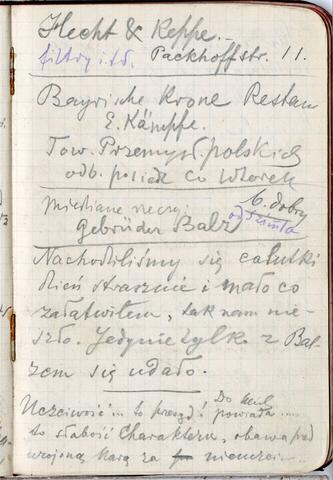 Hecht & Keppe. —
filtry i td. Packhoffstr. 11.
Bayrische Krone Restau
E. Kämpfe.
Tow. Przemysł. polskich
odb. posiedz. co Wtorek
Miedziane rzeczy: b. dobry
Gebrüder Balz
Nachodziliśmy się całutki
dzień strasznie i mało co
załatwiłem, tak nam nie
szło. Jedynie tylko z Bal-
zem się udało.
Uczciwość... to przesąd! Do kul
powiada....
to słabość charakteru, obawa przed
wrojoną karą za